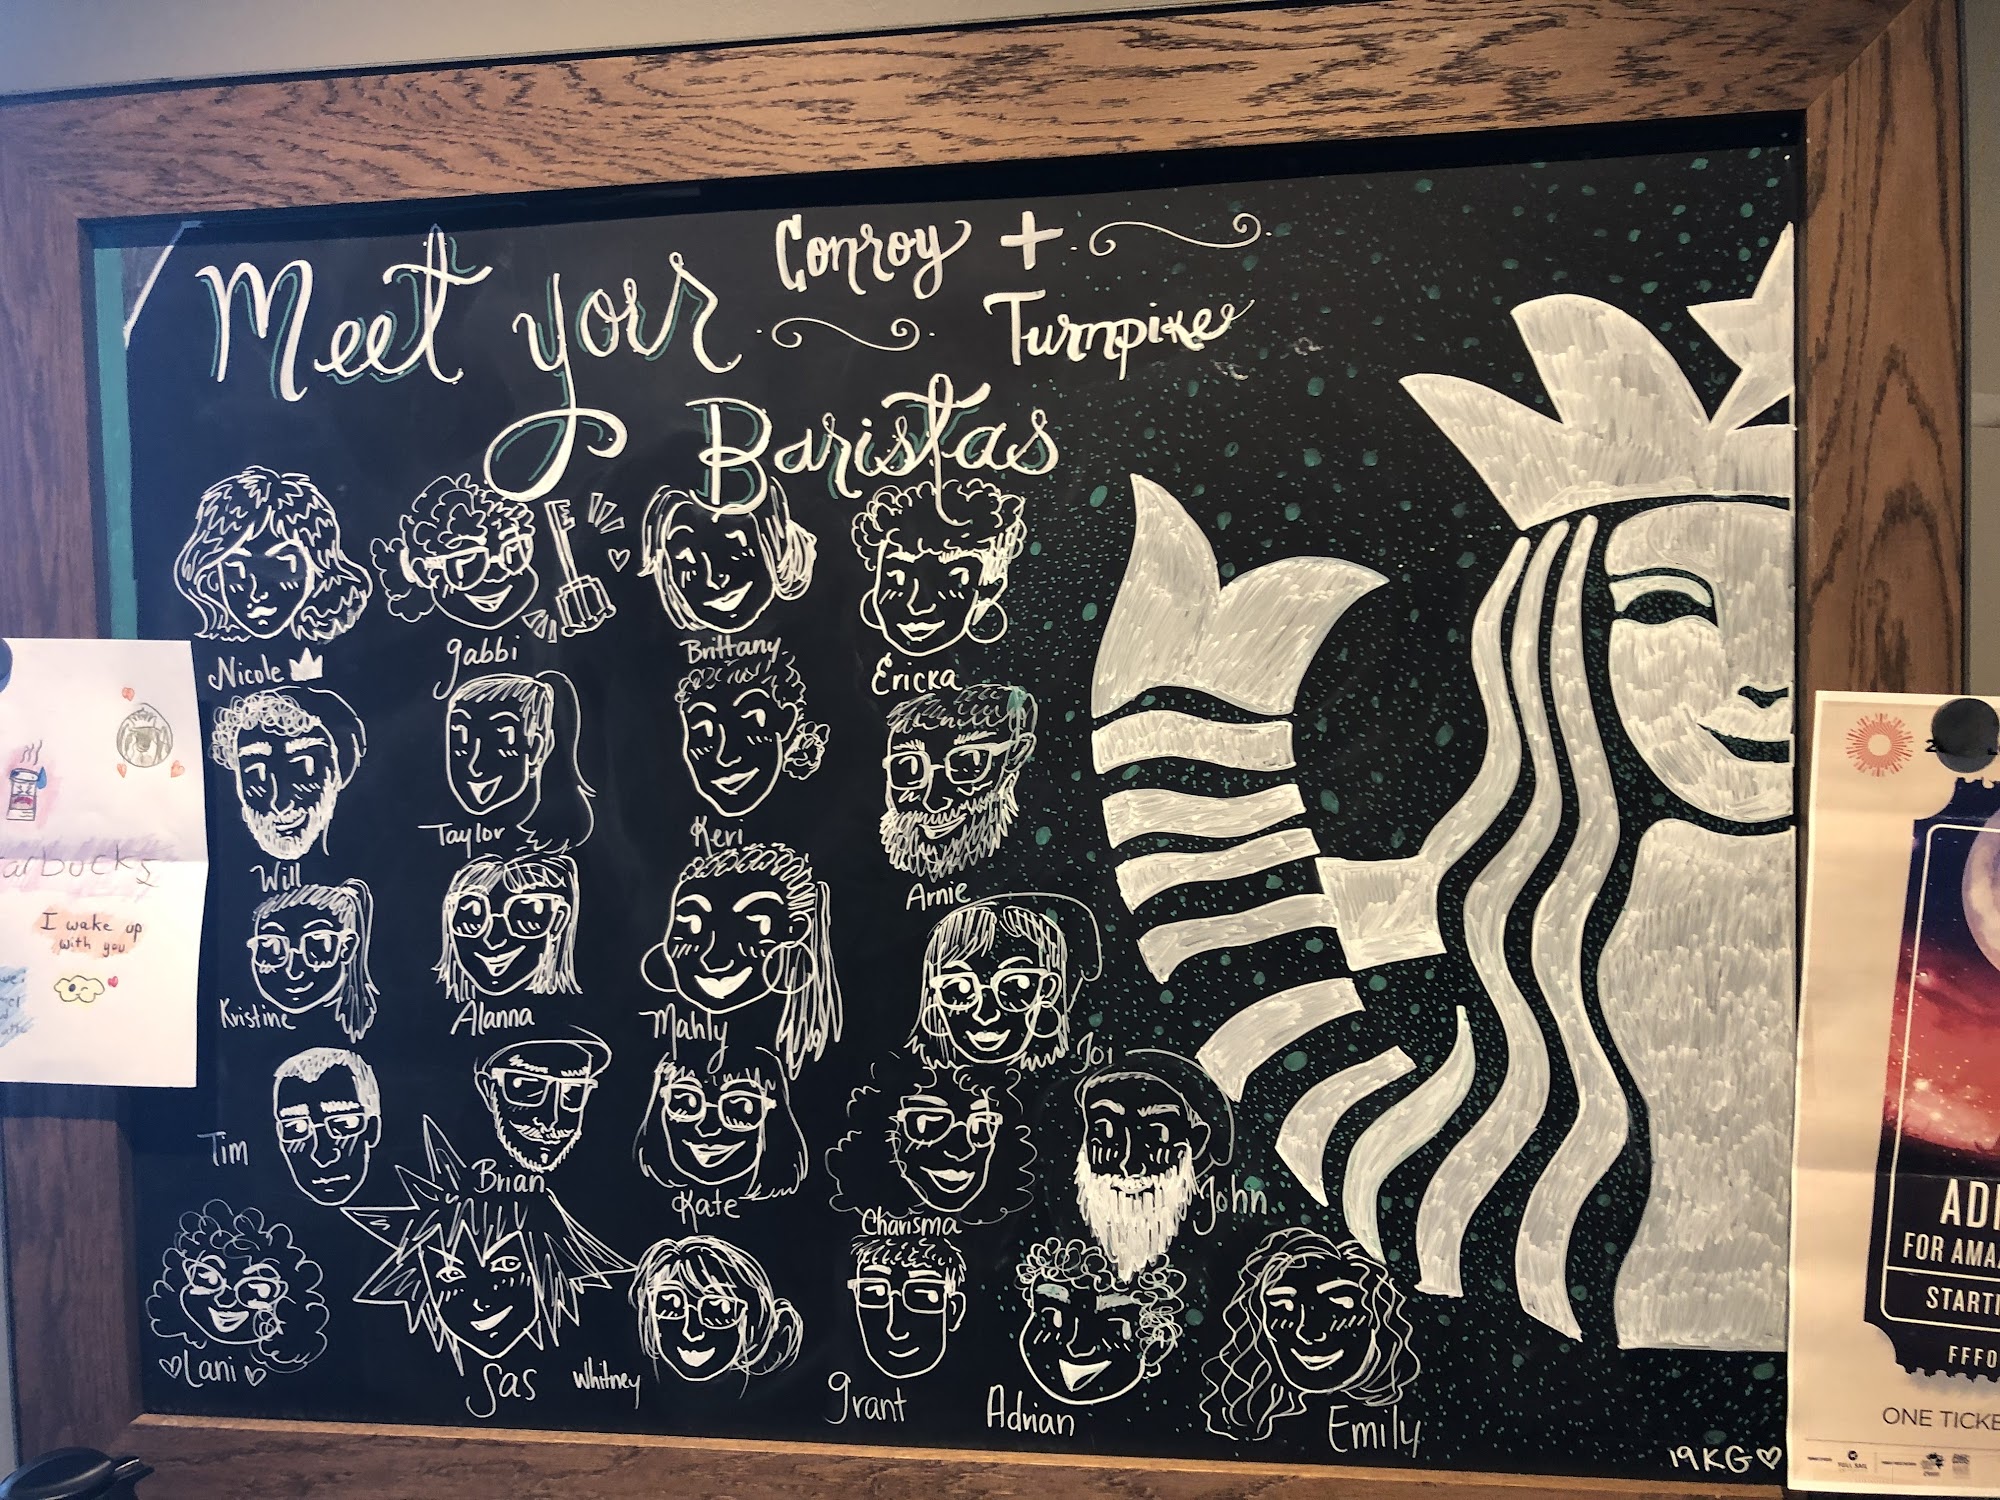 Meet your Conroy +
Turnpike
Baristas
Nicole
gabbi
Brittany
Ericka
Will
Taylor
Keri
Arnie
Kristine
Alanna
Mahly
Joi
Tim
Brian
Kate
Charisma
John
Lani
Sas
Whitney
grant
Adrian
Emily
19KG
arbucks
I wake up
with you
ADI
FOR AMAZ
STARTI
FFFO
ONE TICKE